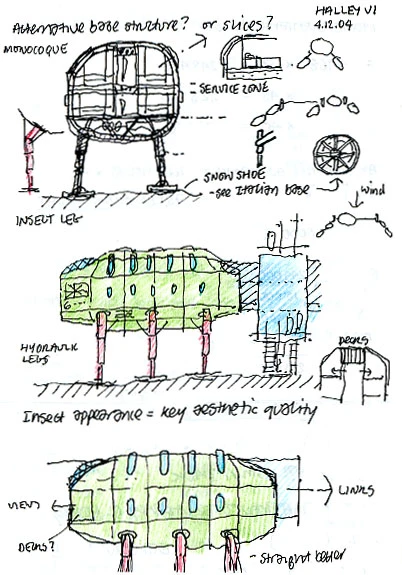 Alternative base structure? or slices?
HALLEY VI
4.12.04
MONOCOQUE
SERVICE ZONE
SNOWSHOE
- see Italian base
WIND
INSECT LEG
HYDRAULIC
LEGS
DECKS
Insect appearance = key aesthetic quality
VIEWS
LINKS
DECKS?
- straight better